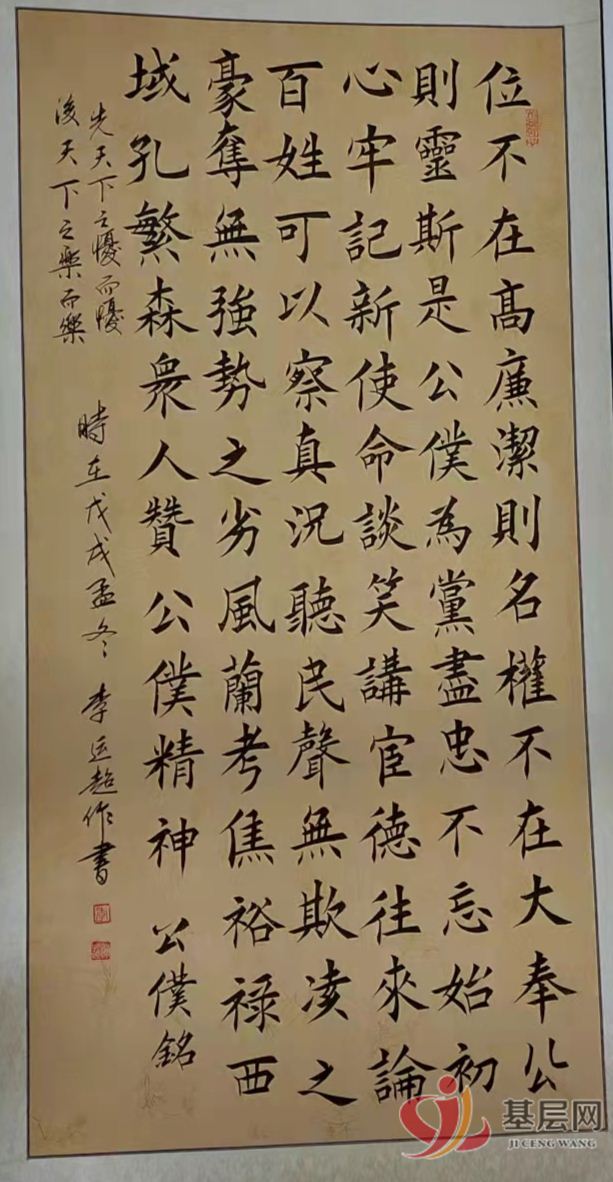 位不在高廉潔則名權不在大奉公
則靈斯是公僕為黨盡忠不忘始初
心牢記新使命談笑講宦德往來論
百姓可以察真況聽民聲無欺凌之
豪奪無強勢之劣風蘭考焦裕祿西
域孔繁森衆人贊公僕精神 公僕銘
先天下之憂而憂
後天下之樂而樂
時在戊戌孟冬 李运超作書
基层网
JI CENG WANG